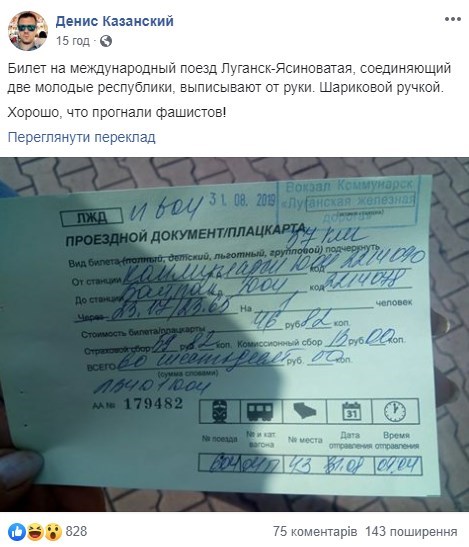 Денис Казанский
15 год ·
Билет на международный поезд Луганск-Ясиноватая, соединяющий
две молодые республики, выписывают от руки. Шариковой ручкой.
Хорошо, что прогнали фашистов!
Переглянути переклад
31.08.2019
Вокзал Коммунарск
«Луганская железная
дорога»
ЛЖД
ПРОЕЗДНОЙ ДОКУМЕНТ/ПЛАЦКАРТА
57 км
Вид билета (полный, детский, льготный, групповой) подчеркнуть
От станции Коммунарск код 2214090
До станции код
Через На 1 человек
Стоимость билета/плацкарты 46 руб 82 коп.
Страховой сбор руб коп. Комиссионный сбор 13 руб 00 коп.
ВСЕГО руб. 00 коп.
(сумма словами)
АА № 179482
№ поезда
№ и кат. вагона
№ места
Дата отправления
Время отправления
604 43 31.08 04.04
828
75 коментарів 143 поширення